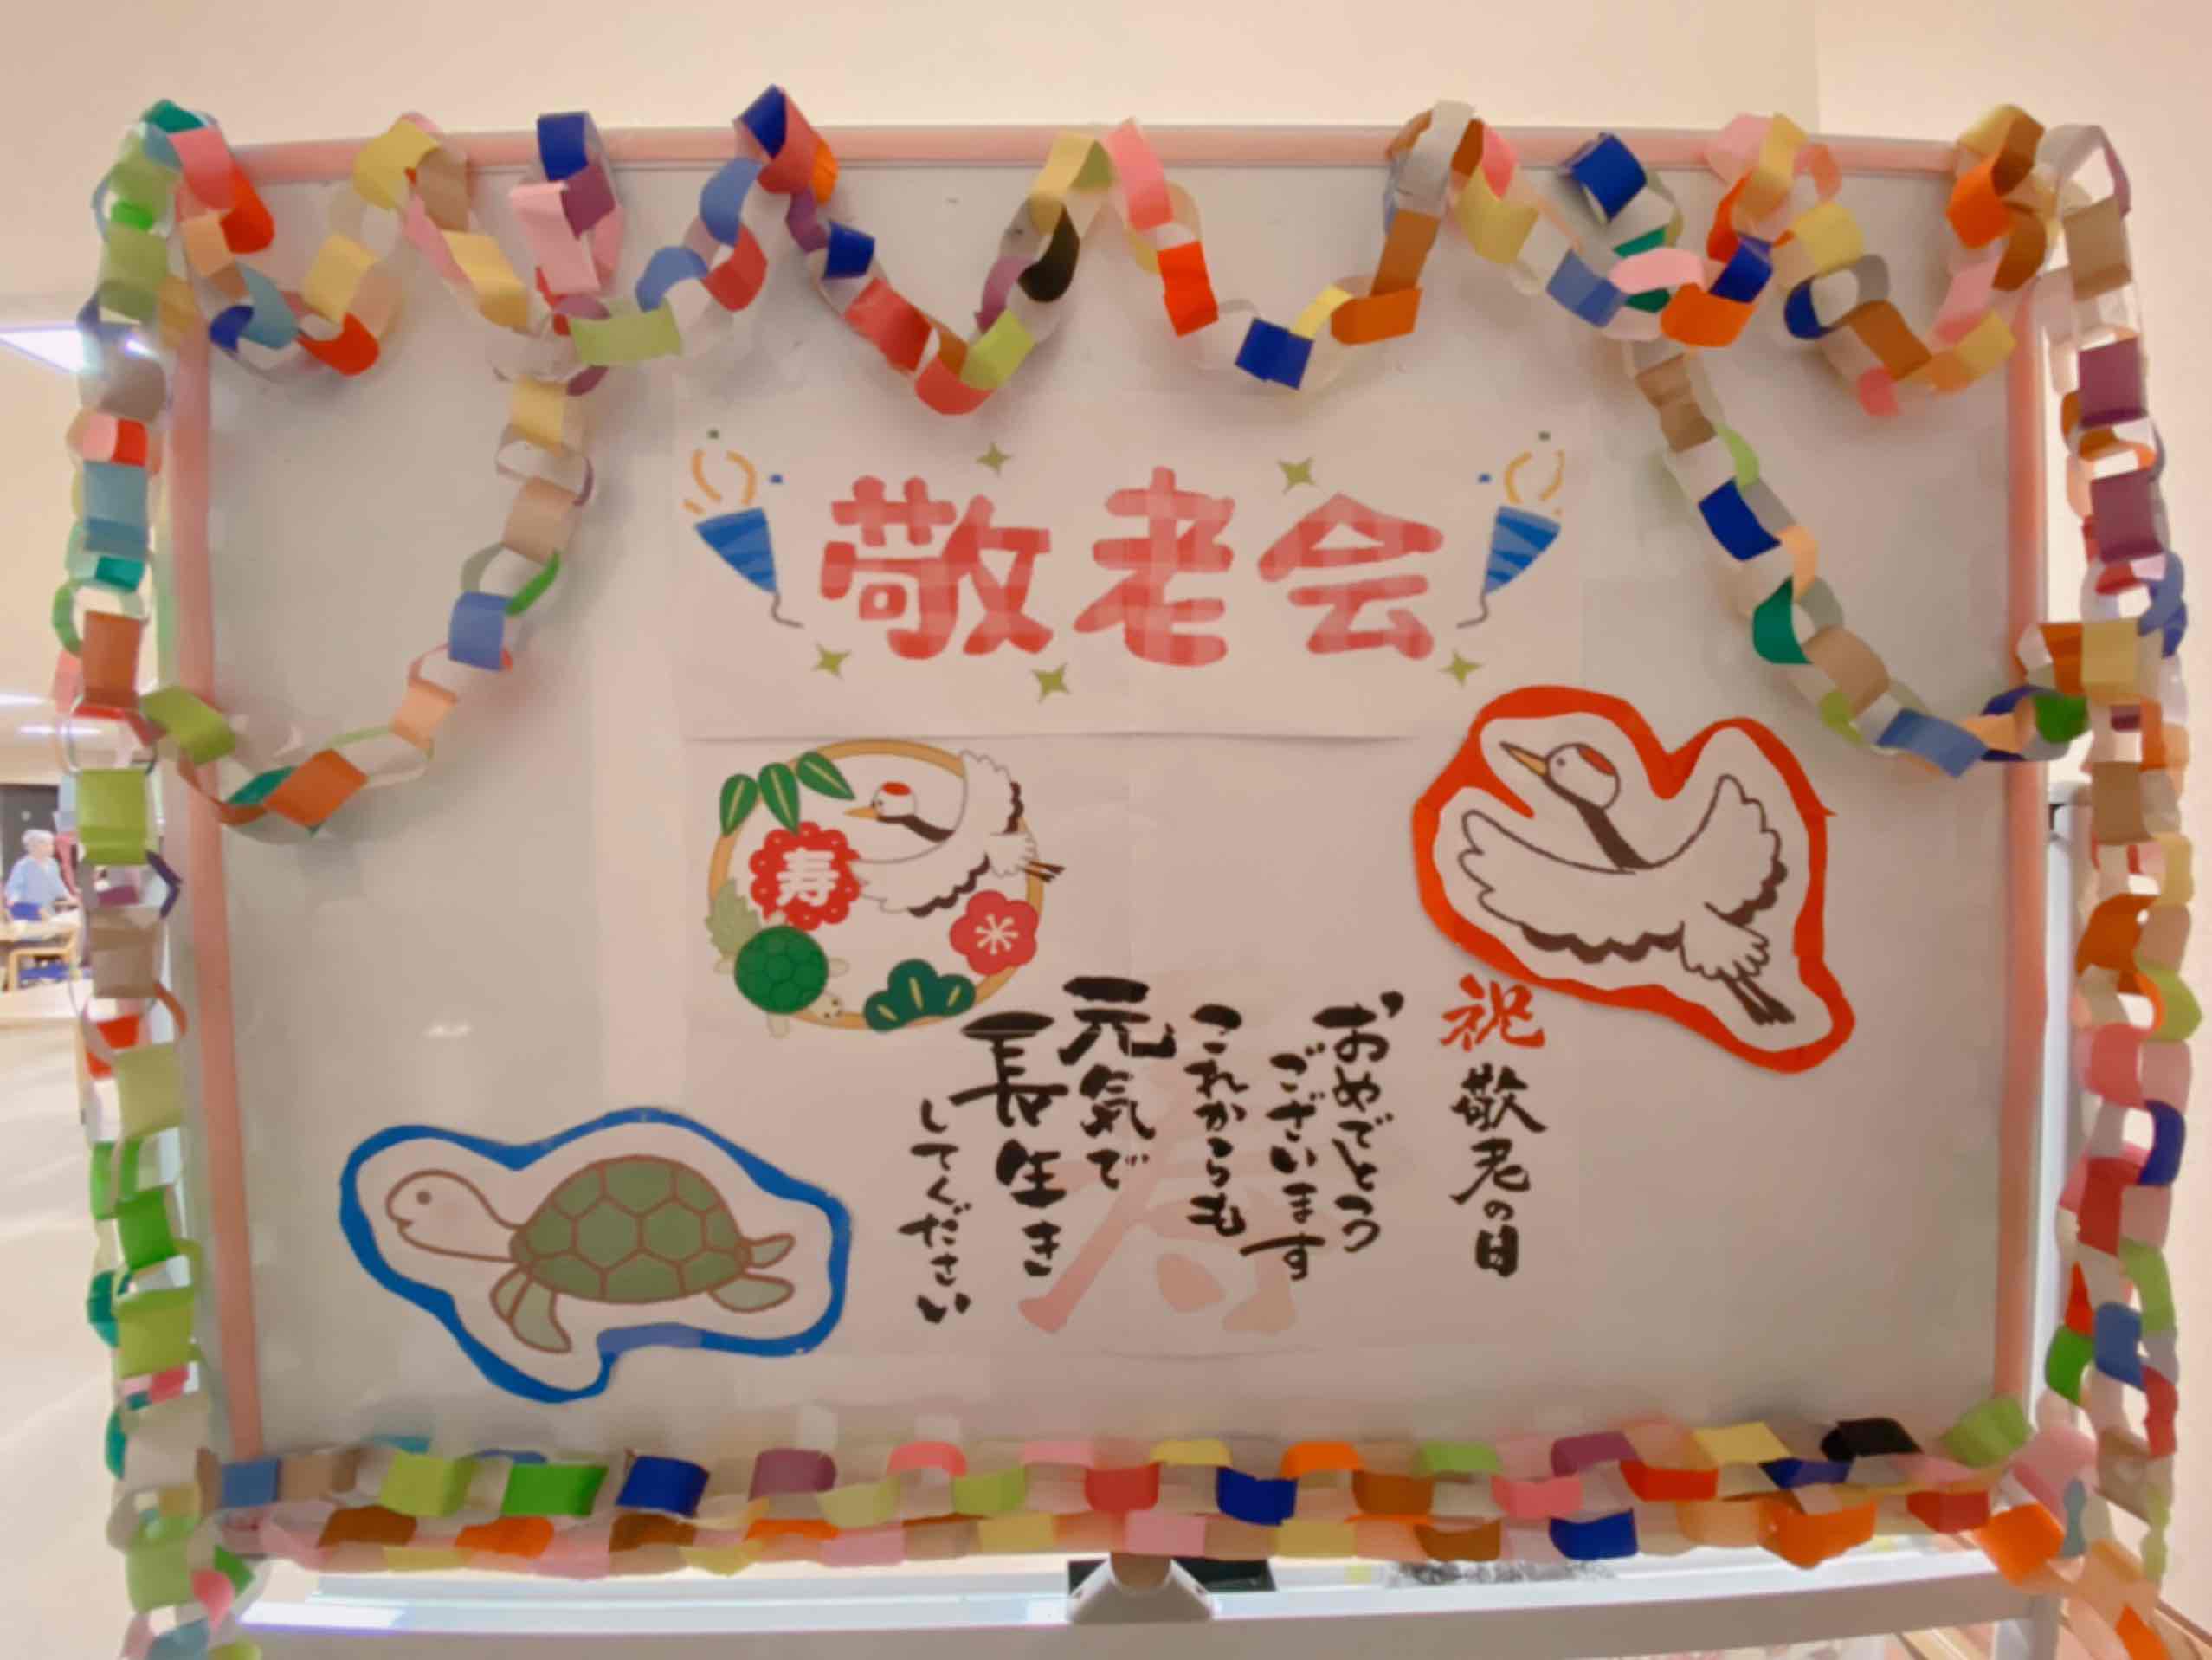 敬老会
寿
祝敬老の日
おめでとう
ございます
これからも
元気で
長生き
してください
寿